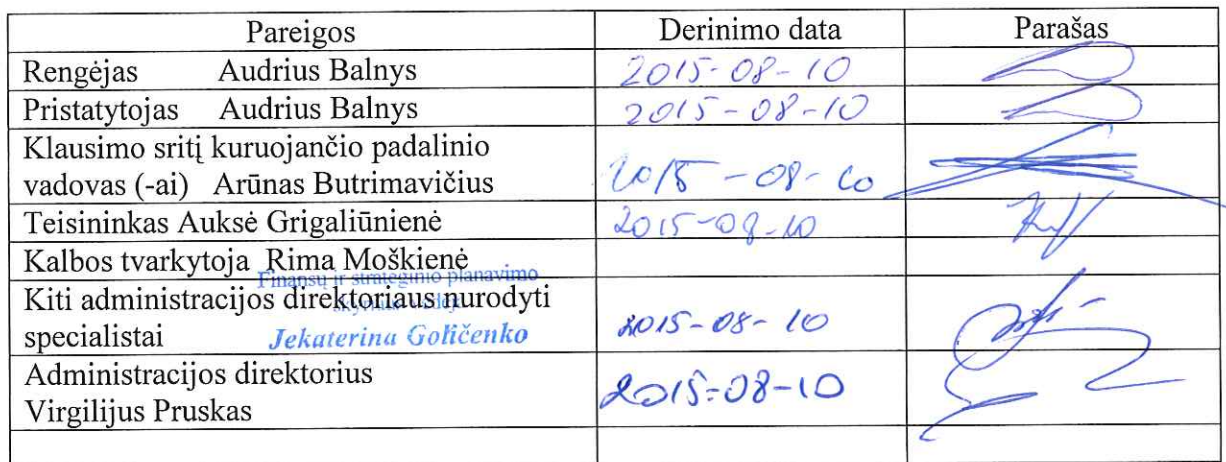 Pareigos Derinimo data Parašas
Rengėjas Audrius Balnys 2015-08-10
Pristatytojas Audrius Balnys 2015-08-10
Klausimo sritį kuruojančio padalinio
vadovas (-ai) Arūnas Butrimavičius 2015-08-10
Teisininkas Auksė Grigaliūnienė 2015-08-10
Kalbos tvarkytoja Rima Moškienė
Finansų ir strateginio planavimo
Kiti administracijos direktoriaus nurodyti
skyriaus vedėja
specialistai Jekaterina Goličenko 2015-08-10
Administracijos direktorius
Virgilijus Pruskas 2015-08-10